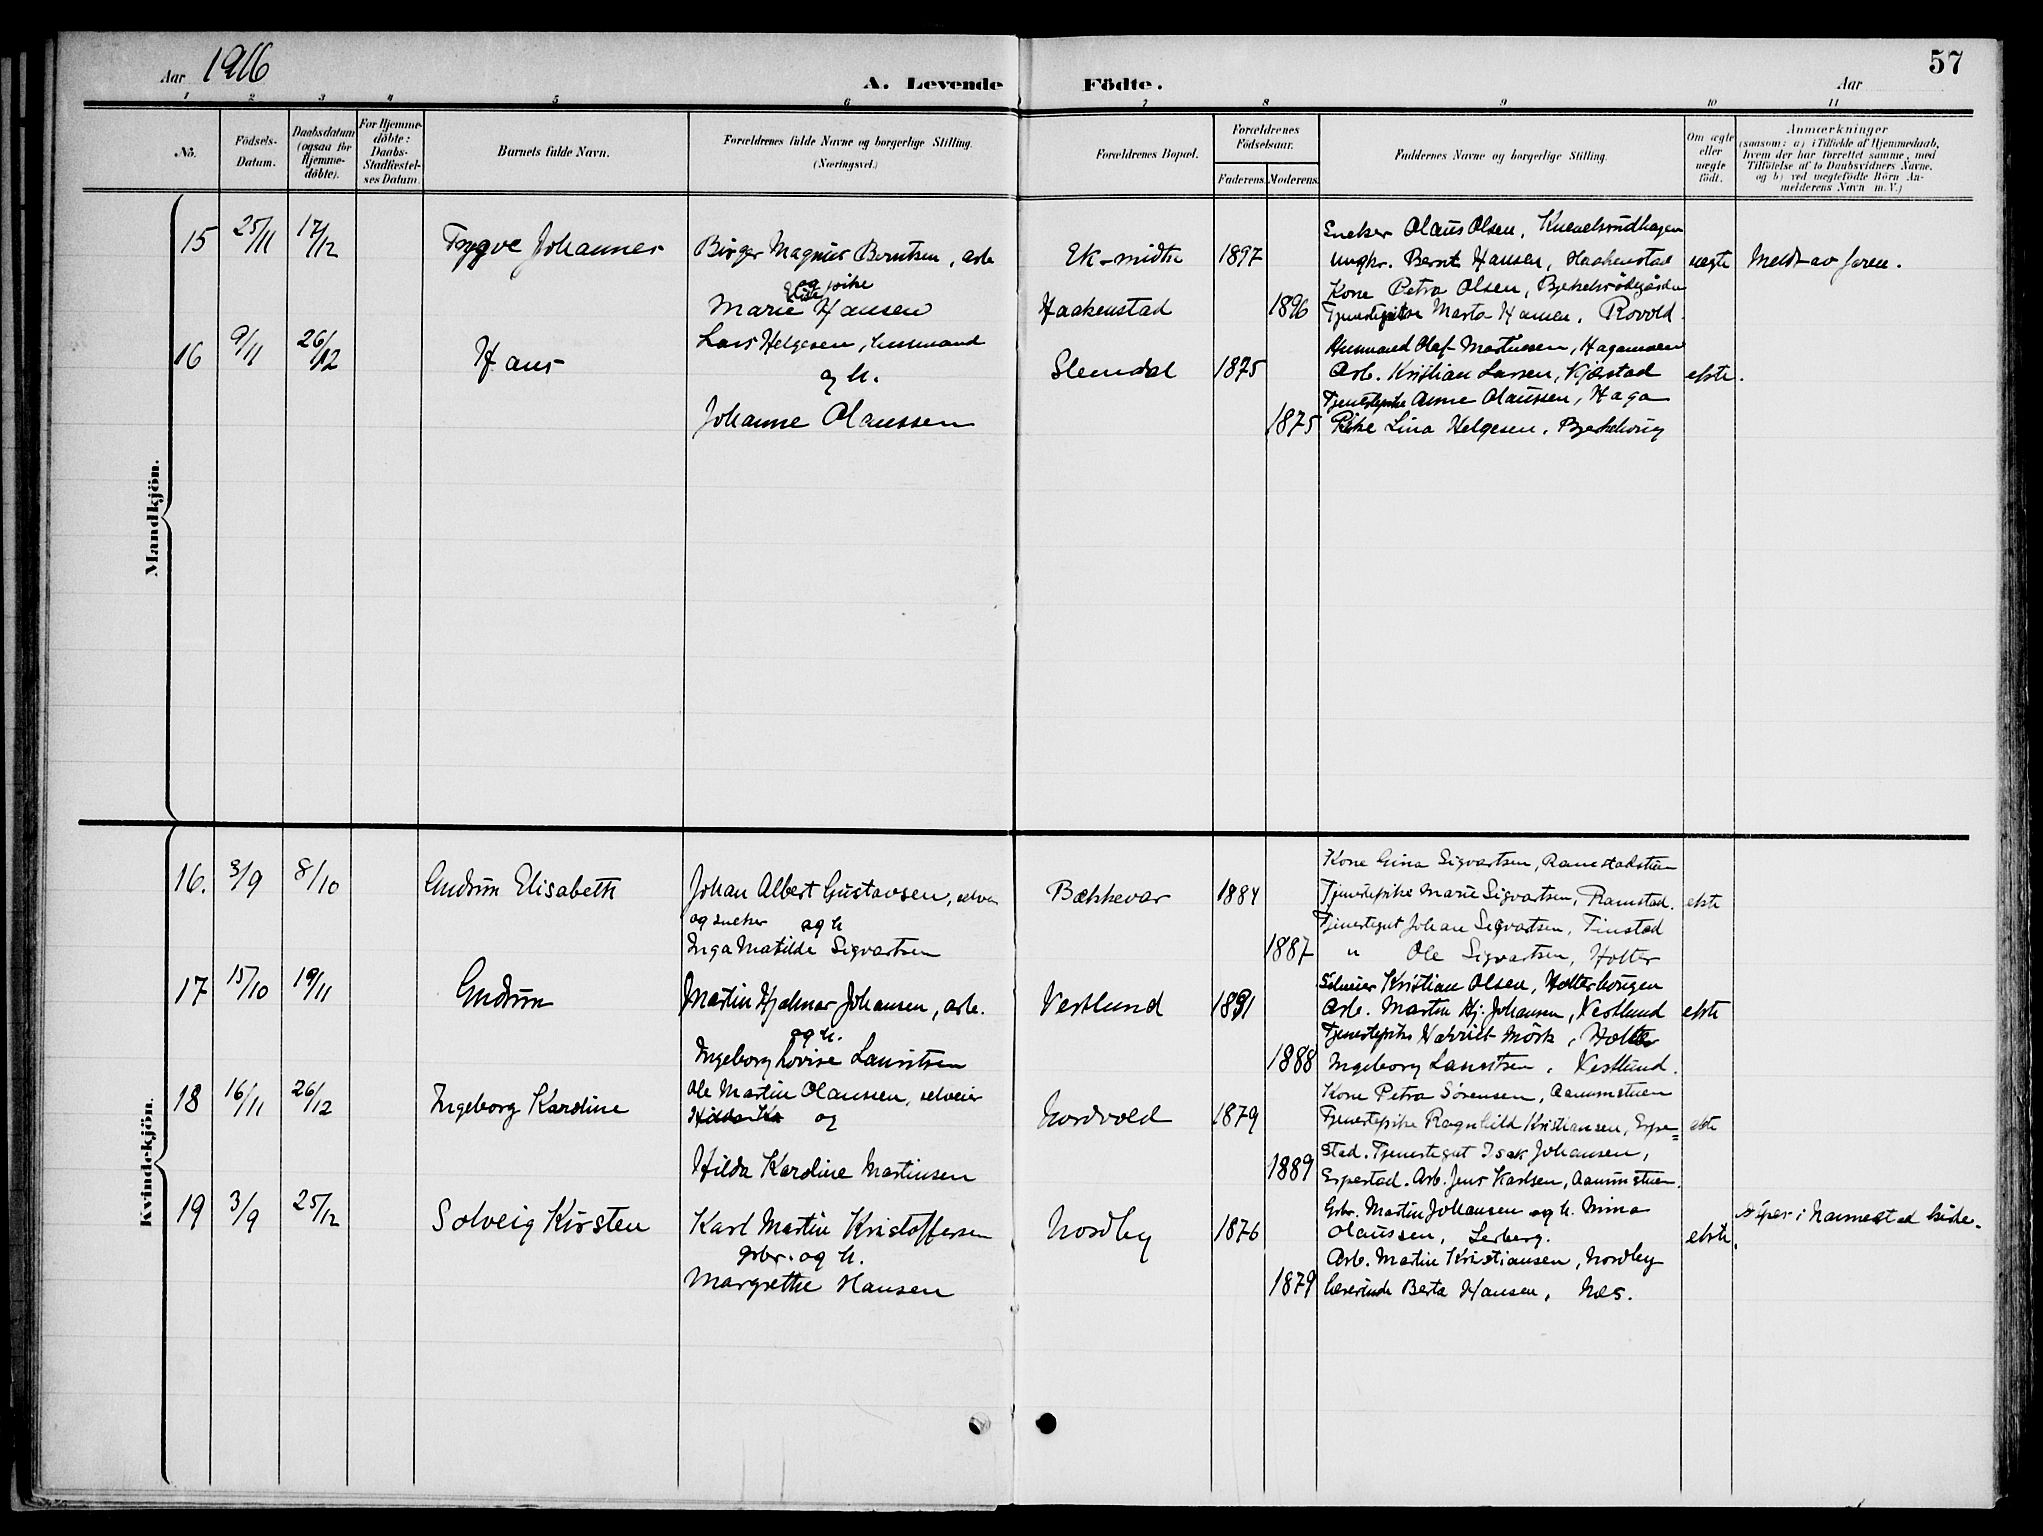 57
Aar 1916 A. Levende Födte. Aar
1 2 3 4 5 6 7 8 9 10 11
No.
Födsels-Datum.
Daabsdatum (ogsaa for Hjemme-döbte).
For Hjemme-döbte: Daabs-Stadfæstel-ses Datum.
Barnets fulde Navn.
Forældrenes fulde Navne og borgerlige Stilling.
(Næringsvei.)
Forældrenes Bopæl.
Forældrenes Födselsaar.
Faderens. Moderens.
Faddernes Navne og borgerlige Stilling.
Om ægte eller uægte födt.
Anmærkninger
(saasom: a) i Tilfælde af Hjemmedaab,
hvem der har forrettet samme, med
Tilföielse af to Daabsvidners Navne.
og b) ved uægtefödte Börn An-
melderens Navn m. V.)
Mandkjön.
15 25/11 17/12 Trygve Johannes
Birger Magnus Berntsen, arb.
og pike
Marie Hansen
Ek-midtre 1897
Haakenstad 1896
Snekker Olaus Olsen,
Ungkr. Bernt Hansen, Haakenstad
Kone Petra Olsen,
Tjenestepike Marta Hansen, Rovold.
uægte
Meldt av faren.
16 9/11 26/12 Hans
Lars Helgesen, husmand
og h.
Johanne Olaussen
Slemdal 1875
1875
Husmand Olaf Martinsen, Hagamoen
Arb. Kristian Larsen, Kjærstad
Tjenestepike Anne Olaussen, Haga
Pike Lina Helgesen,
ekte.
Kvindekjön.
16. 3/9 8/10 Gudrun Elisabeth
Johan Albert Gustavsen, selveier
og snekker og h
Inga Matilde Sigvartsen
Bækkevar 1884
1887
Kone Gina Sigvartsen, Ramstadstuen
Tjenestepike Marie Sigvartsen, Ramstad.
Tjenestegut Johan Sigvartsen, Finstad
" Ole Sigvartsen, Holter
ekte
17 15/10 19/11 Gudrun
Martin Hjalmar Johansen, arb.
og h.
Ingeborg Lovise Lauritsen
Vestlund 1891
1888
Selveier Kristian Olsen, Holterhougen
Arb. Martin Hj. Johansen, Vestlund
Tjenestepike Harriet Mörk, Holter
Ingeborg Lauritsen, Vestlund.
ekte
18 16/11 26/12 Ingeborg Karoline
Ole Martin Olaussen, selveier
og
Hilda Karoline Martinsen
Nordvold 1879
1889
Kone Petra Sörensen, Aammstuen
Tjenestepike Ragnhild Kristiansen, Espe=
stad. Tjenestegut Isak Johansen,
Espestad. Arb. Jens Karlsen, Aammstuen.
ekte
19 3/9 25/12 Solveig Kirsten
Karl Martin Kristoffersen
grbr. og h.
Margrethe Hansen
Nordby 1876
1879
Grbr. Martin Johansen og h. Mina
Olaussen, Lerberg.
Arb. Martin Kristiansen, Nordby
Lærerinde Berta Hansen, Næs.
ekte.